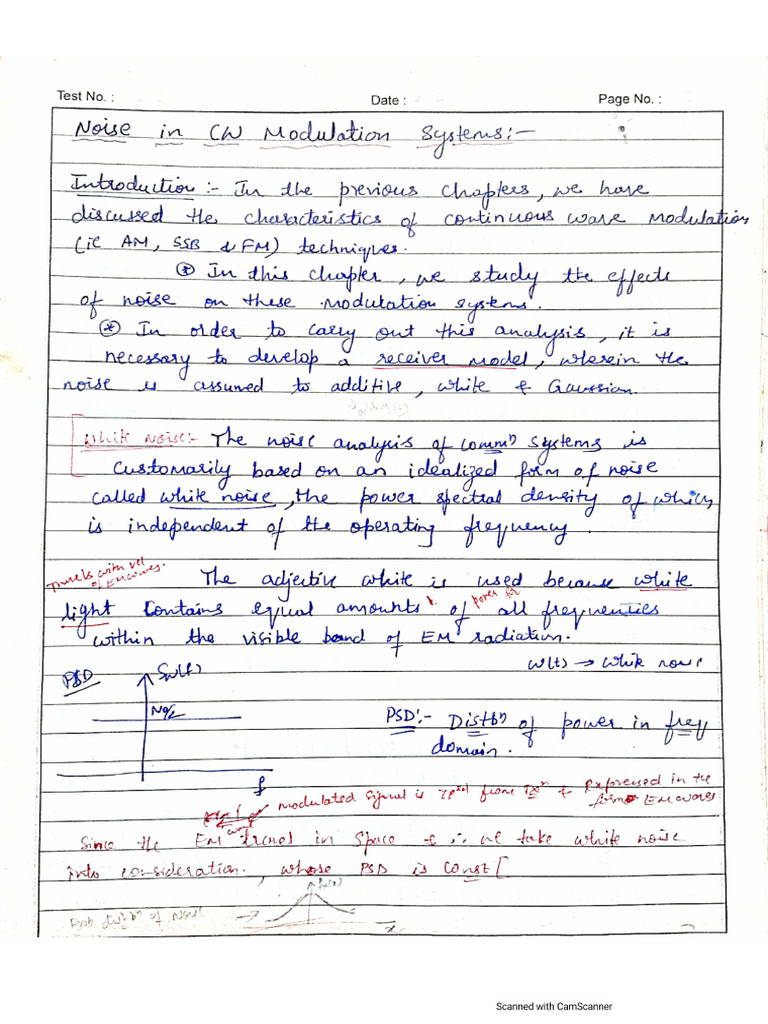 Test No. :
Date :
Page No. :
Noise in CW Modulation Systems:-
Introduction:- In the previous chapters, we have
discussed the characteristics of continuous wave modulation
(ie AM, SSB & FM) techniques.
⊛ In this chapter, we study the effects
of noise on these modulation systems.
⊛ In order to carry out this analysis, it is
necessary to develop a receiver model, wherein the
noise is assumed to additive, white & Gaussian.
White Noise:- The noise analysis of commn systems is
customarily based on an idealized form of noise
called white noise, the power spectral density of which
is independent of the operating frequency.
Travels with vel
of EM waves.
The adjective white is used because white
power for
light contains equal amounts of all frequencies
within the visible band of EM radiation.
w(t) → white noise
PSD
Sw(f)
No/2
f
PSD:- Distbn of power in freq
domain.
modulated signal is from Txr & Expressed in the
form EM waves
Since the EM wave travel in space & ∴ we take white noise
into consideration, whose PSD is const
Prob distbn of Noise
x
Scanned with CamScanner